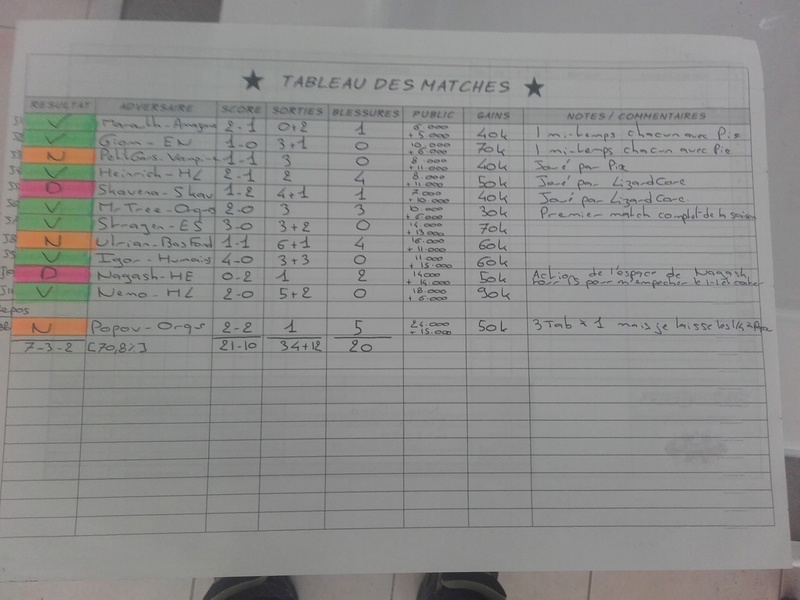 ★ TABLEAU DES MATCHES ★
RESULTAT ADVERSAIRE SCORE SORTIES BLESSURES PUBLIC GAINS NOTES / COMMENTAIRES
V 2-1 0+2 1 +5.000 40k 1 mi-temps chacun avec Pix
V Giom - EN 1-0 3+1 0 70k 1 mi-temps chacun avec Pix
N 1-1 3 0 8.000 +11.000 40k Joué par Pix
V Heinrich - HL 2-1 2 4 8.000 +11.000 50k Joué par LizardCore
D Skavena - Skav 1-2 4+1 1 7.000 +10.000 40k Joué par LizardCore
V Mr Tree - Orqs 2-0 3 3 30k Premier match complet de la saison
V 3-0 3+2 0 +13.000 70k
N Ulrian - Bas Fond 1-1 6+1 4 16.000 +11.000 60k
V Igor - Humains 4-0 3+3 0 11.000 +15.000 60k
D Nagash - HE 0-2 1 2 14000 +14.000 50k Actions de l'espace de Nagash
V Nemo - HL 2-0 5+2 0 18.000 +6.000 90k
epos
N Popov - Orqs 2-2 1 5 +15.000 50k 3 Tab × 1 mais je laisse les
7-3-2 [70,8%] 21-10 34+12 20